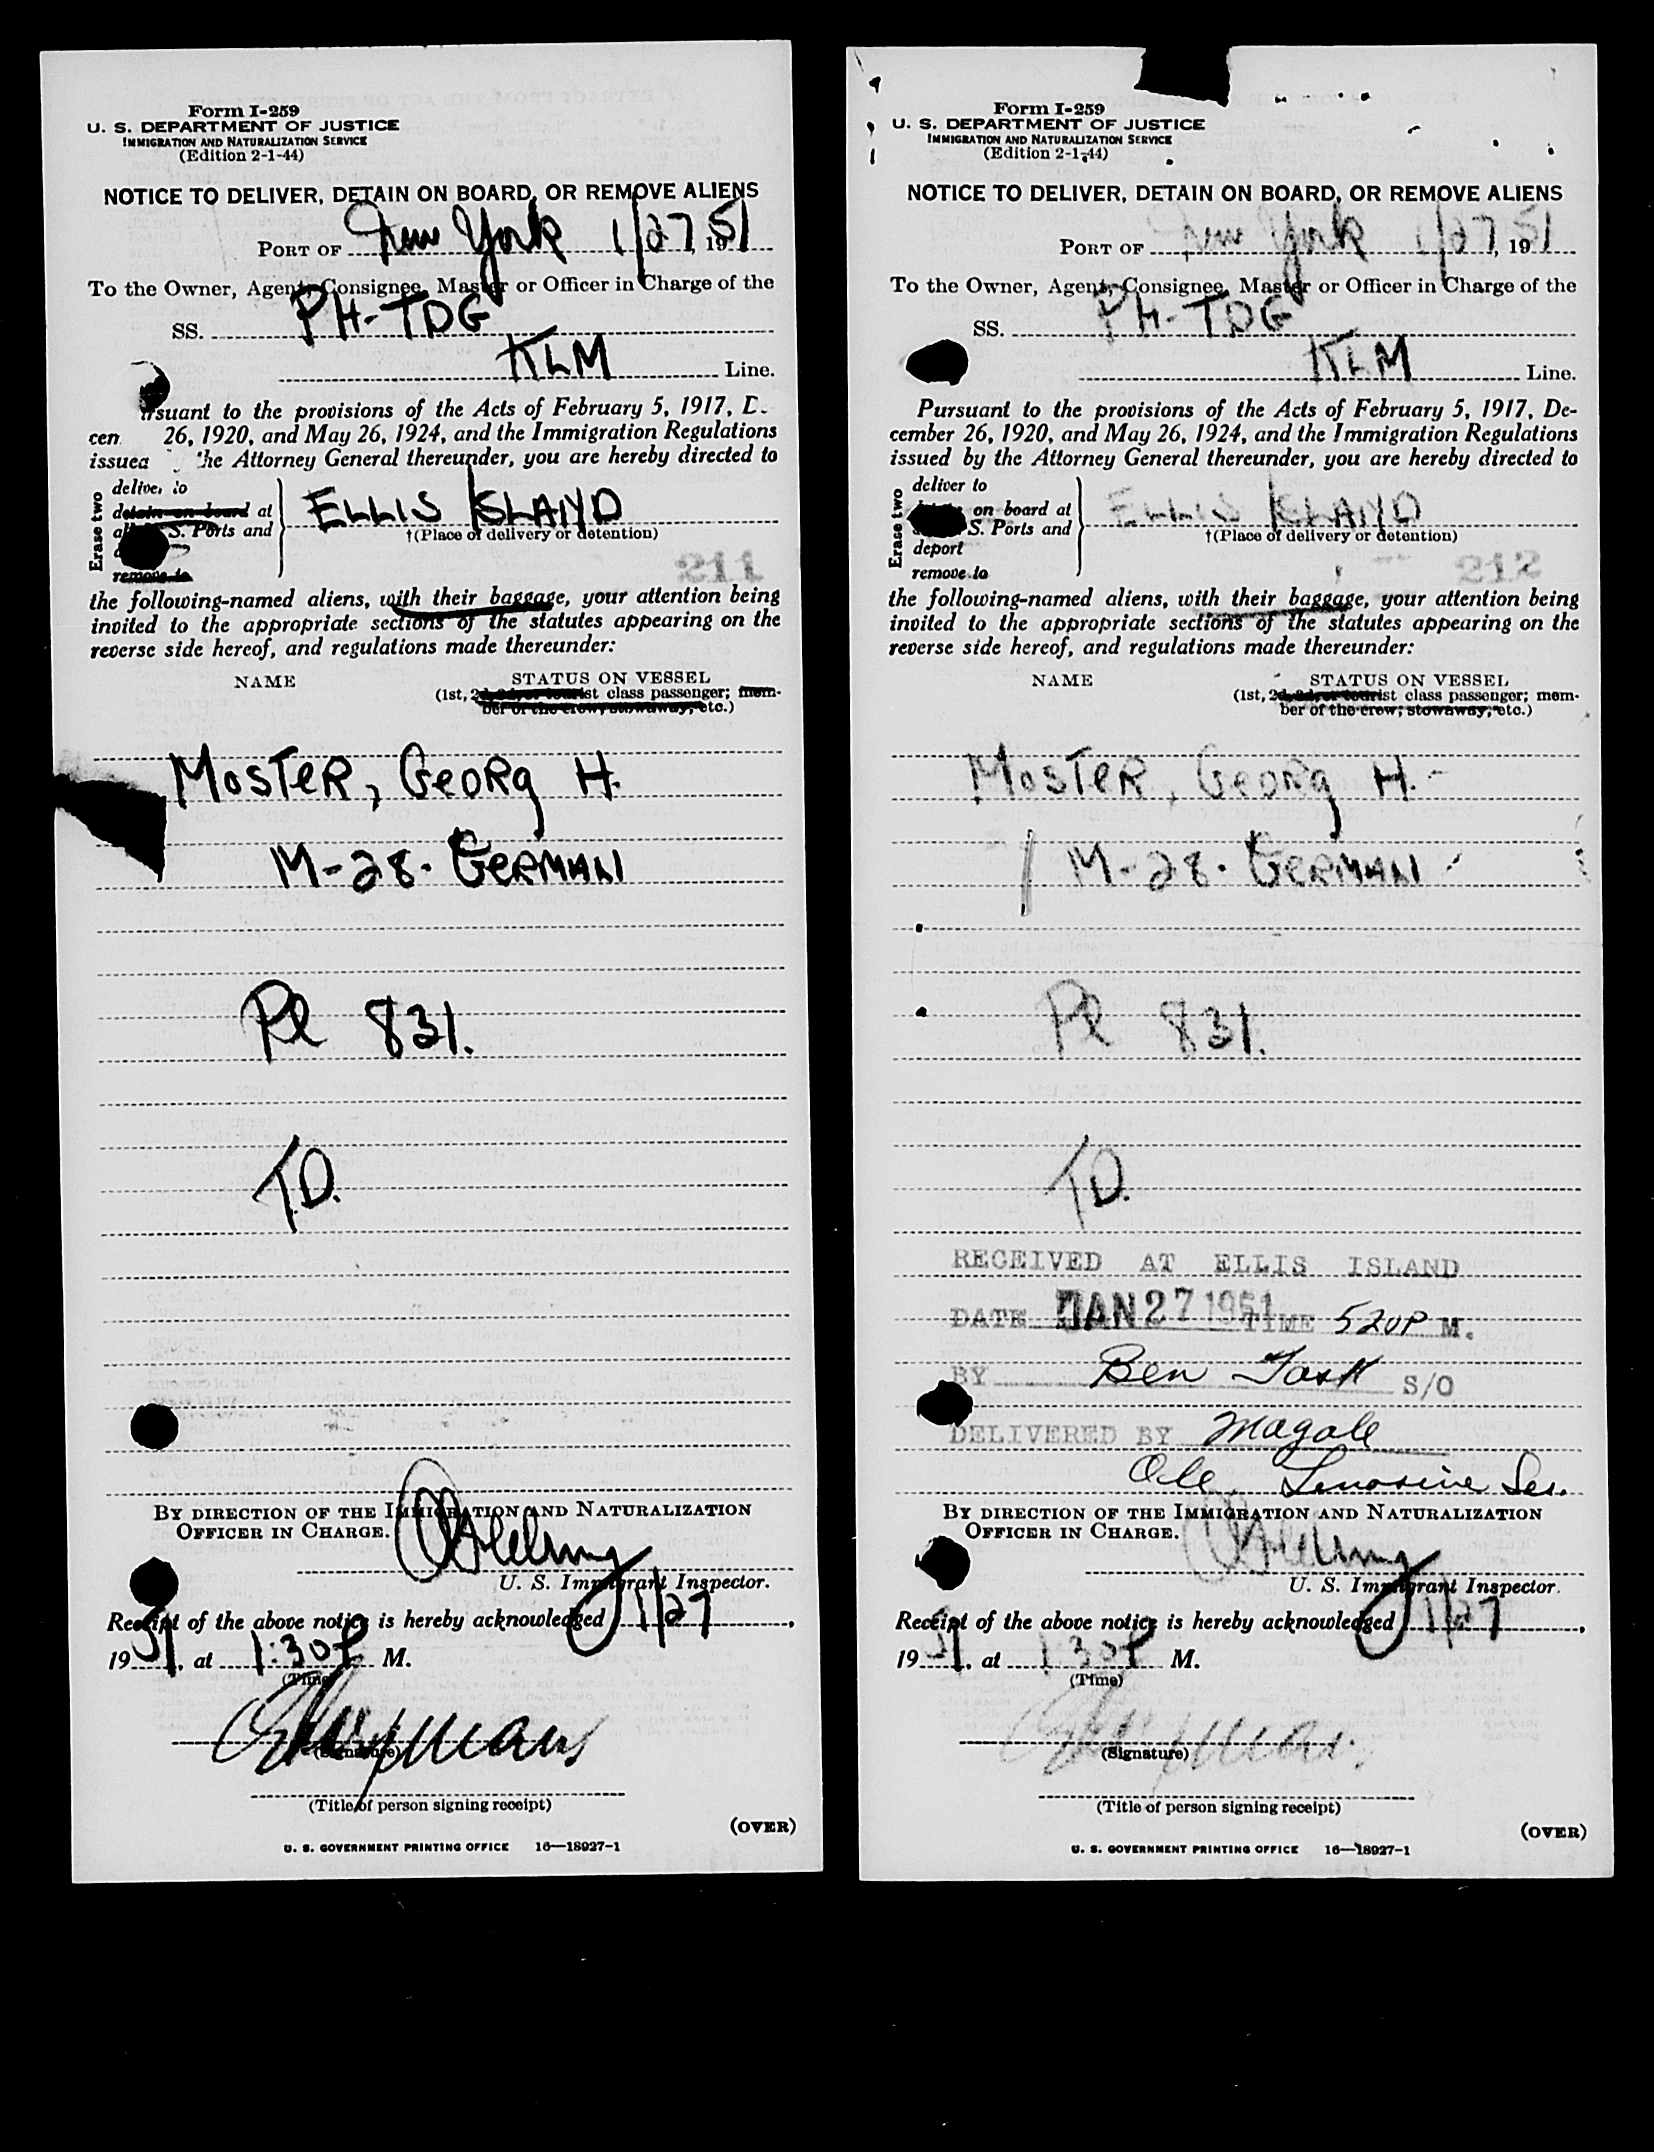 Form I-259
U. S. DEPARTMENT OF JUSTICE
IMMIGRATION AND NATURALIZATION SERVICE
(Edition 2-1-44)
NOTICE TO DELIVER, DETAIN ON BOARD, OR REMOVE ALIENS
PORT OF New York 1/27, 1951
To the Owner, Agent, Consignee, Master or Officer in Charge of the
SS. PH-TDG
KLM Line.
suant to the provisions of the Acts of February 5, 1917, D
cem 26, 1920, and May 26, 1924, and the Immigration Regulations
issued the Attorney General thereunder, you are hereby directed to
Erase two
deliver to
detain on board at
S. Ports and
remove to
ELLIS ISLAND
†(Place of delivery or detention)
211
the following-named aliens, with their baggage, your attention being
invited to the appropriate sections of the statutes appearing on the
reverse side hereof, and regulations made thereunder:
NAME
STATUS ON VESSEL
(1st, 2d, 3d, or tourist class passenger; mem-
ber of the crew; stowaway, etc.)
MOSTER, GEORg H.
M-28. GERMAN
Pl 831.
T.D.
BY DIRECTION OF THE IMMIGRATION AND NATURALIZATION
OFFICER IN CHARGE.
U. S. Immigrant Inspector.
Receipt of the above notice is hereby acknowledged 1/27,
1951, at 1:30P M.
(Time)
(Signature)
(Title of person signing receipt)
(OVER)
U. S. GOVERNMENT PRINTING OFFICE 16—18927-1
Form I-259
U. S. DEPARTMENT OF JUSTICE
IMMIGRATION AND NATURALIZATION SERVICE
(Edition 2-1-44)
NOTICE TO DELIVER, DETAIN ON BOARD, OR REMOVE ALIENS
PORT OF New York 1/27, 1951
To the Owner, Agent, Consignee, Master or Officer in Charge of the
SS. PH-TDG
KLM Line.
Pursuant to the provisions of the Acts of February 5, 1917, De-
cember 26, 1920, and May 26, 1924, and the Immigration Regulations
issued by the Attorney General thereunder, you are hereby directed to
Erase two
deliver to
on board at
S. Ports and
deport
remove to
ELLIS ISLAND
†(Place of delivery or detention)
212
the following-named aliens, with their baggage, your attention being
invited to the appropriate sections of the statutes appearing on the
reverse side hereof, and regulations made thereunder:
NAME
STATUS ON VESSEL
(1st, 2d, 3d, or tourist class passenger; mem-
ber of the crew; stowaway, etc.)
MOSTER, GEORg H.
M-28. GERMAN
Pl 831.
T.D.
RECEIVED AT ELLIS ISLAND
DATE JAN 27 1951 TIME 520P M.
BY Ben Task S/O
DELIVERED BY Magale
BY DIRECTION OF THE IMMIGRATION AND NATURALIZATION
OFFICER IN CHARGE.
U. S. Immigrant Inspector.
Receipt of the above notice is hereby acknowledged 1/27,
1951, at 1:30P M.
(Time)
(Signature)
(Title of person signing receipt)
(OVER)
U. S. GOVERNMENT PRINTING OFFICE 16—18927-1